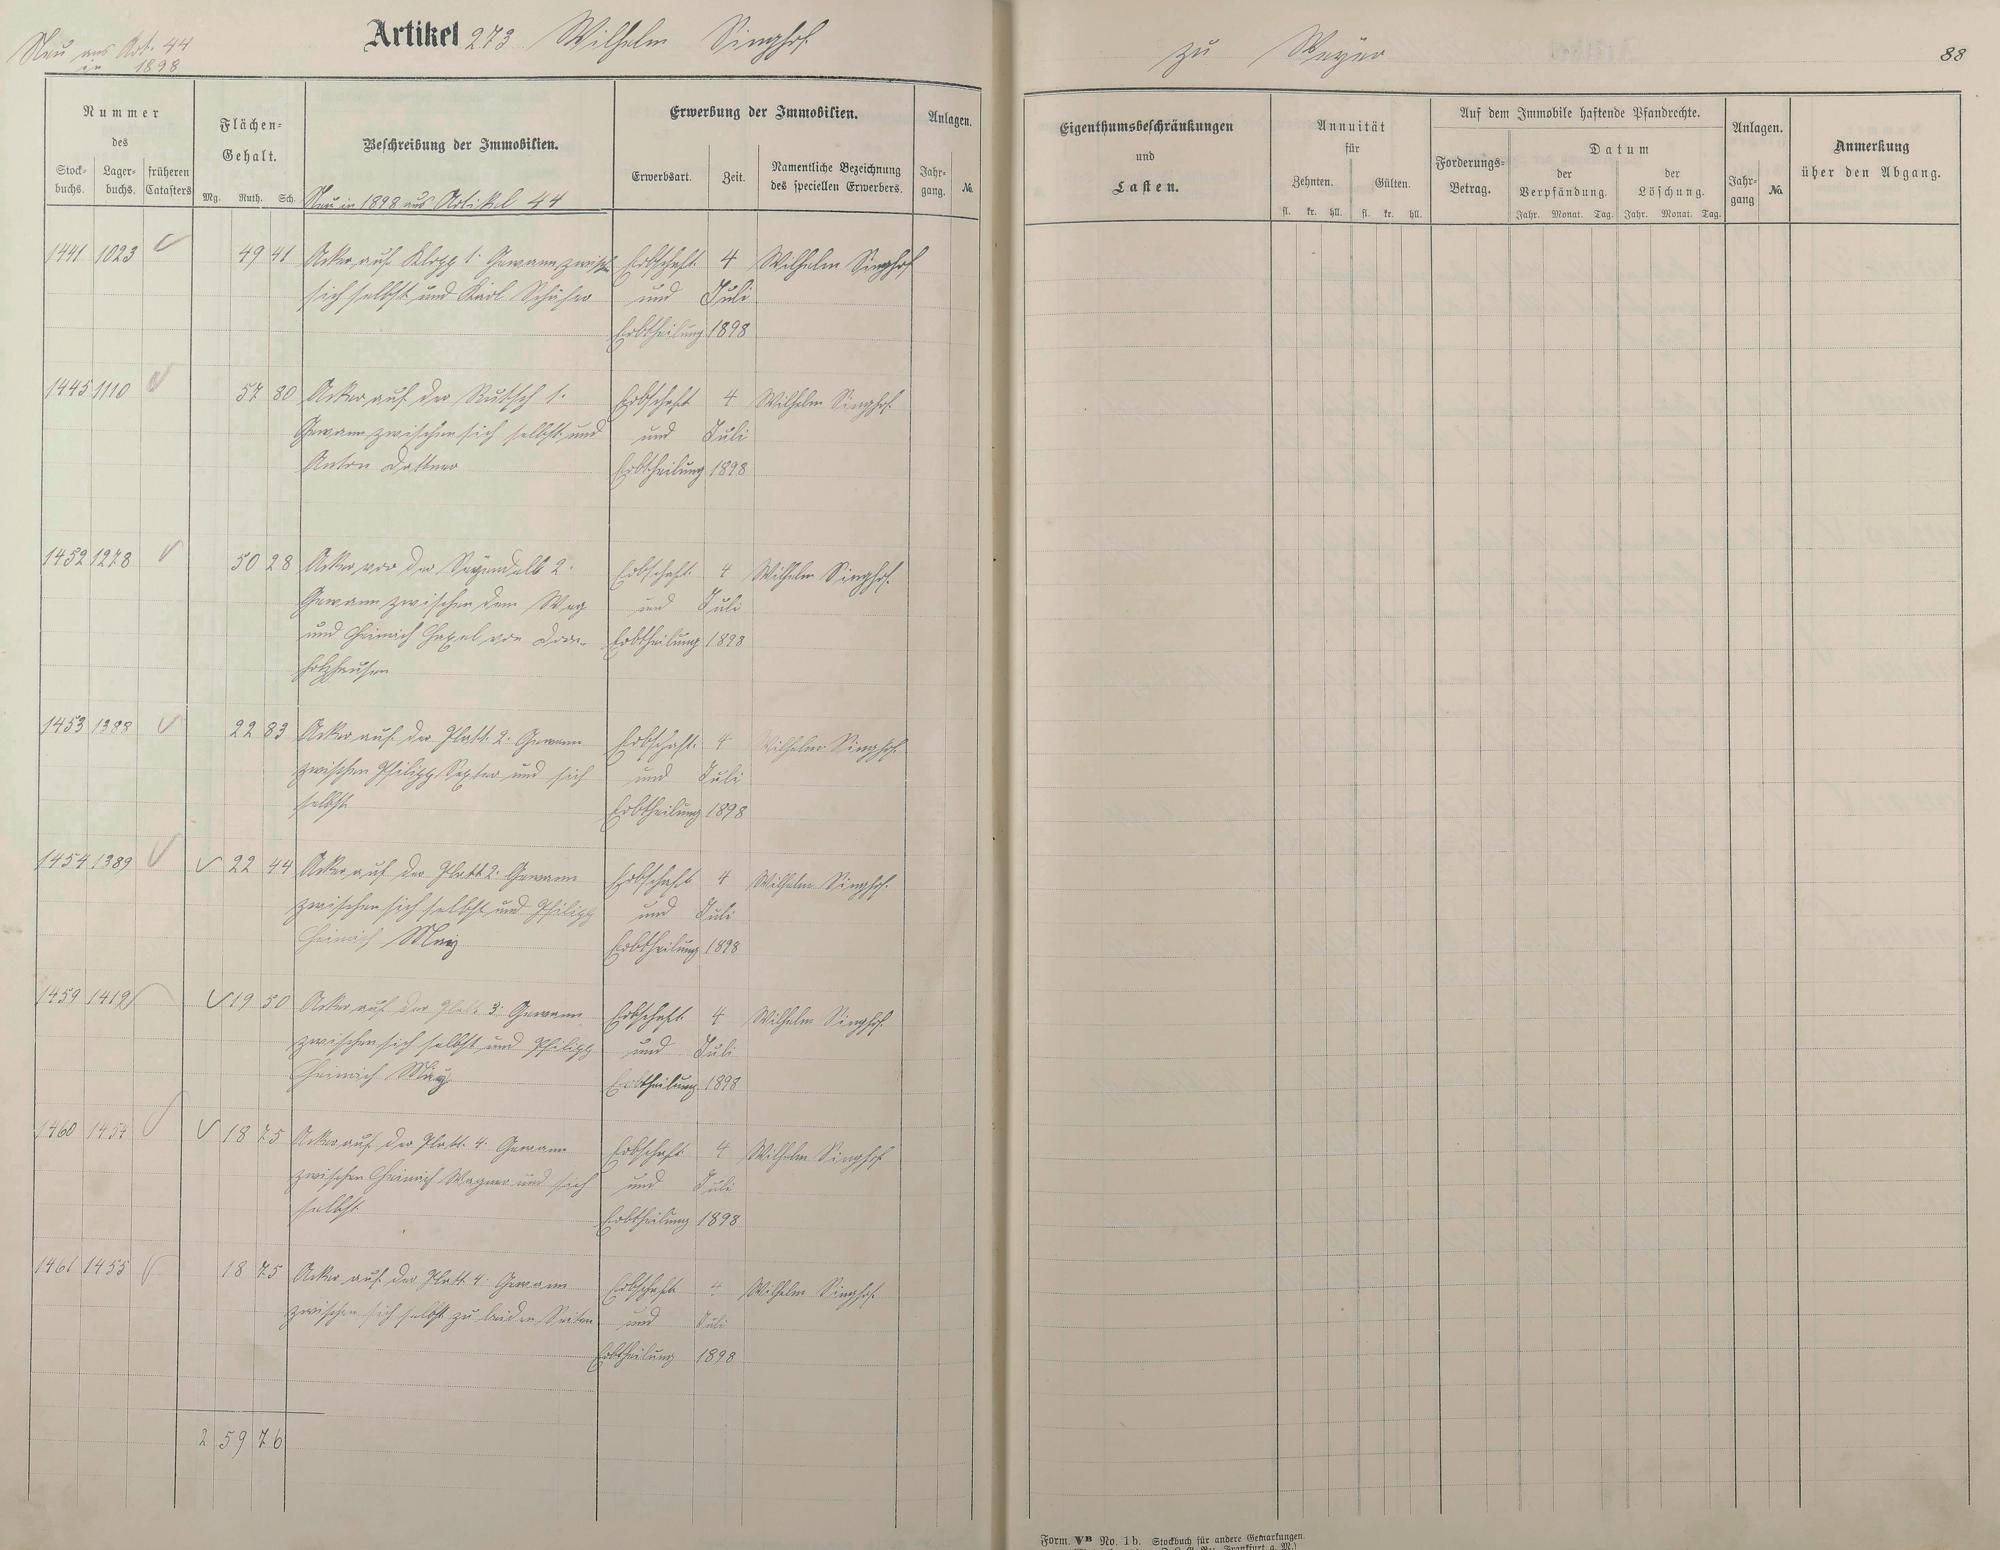 Neu aus Art. 44
in 1898
Artikel 273 Wilhelm Singhof
Nummer
des
Stock-
buchs.
Lager-
buchs.
früheren
Catasters
Flächen-
Gehalt.
Mg. Ruth. Sch.
Beschreibung der Immobilien.
Neu in 1898 aus Artikel 44
Erwerbung der Immobilien.
Erwerbsart.
Zeit.
Namentliche Bezeichnung
des speciellen Erwerbers.
Anlagen.
Jahr-
gang.
No.
1441 1023 49 41 Acker auf Klopp 1. Gewann zwischen Erbschaft 4 Wilhelm Singhof
sich selbst und Karl Schäfer und Juli
Erbtheilung 1898
1445 1110 57 80 Acker auf der Rutsch 1. Erbschaft 4 Wilhelm Singhof
Gewann zwischen sich selbst und und Juli
Anton Erbtheilung 1898
1452 1278 50 28 Acker vor der 2. Erbschaft 4 Wilhelm Singhof
Gewann zwischen dem Weg und Juli
und Heinrich von Dorn- Erbtheilung 1898
holzhausen
1453 1388 22 83 Acker auf der Platt 2. Gewann Erbschaft 4 Wilhelm Singhof
zwischen Philipp und sich und Juli
selbst Erbtheilung 1898
1454 1389 22 44 Acker auf der Platt 2. Gewann Erbschaft 4 Wilhelm Singhof
zwischen sich selbst und Philipp und Juli
Heinrich May Erbtheilung 1898
1459 1419 19 50 Acker auf der Platt 3. Gewann Erbschaft 4 Wilhelm Singhof
zwischen sich selbst und Philipp und Juli
Heinrich May Erbtheilung 1898
1460 1454 18 75 Acker auf der Platt 4. Gewann Erbschaft 4 Wilhelm Singhof
zwischen Heinrich Wagner und sich und Juli
selbst Erbtheilung 1898
1461 1455 18 75 Acker auf der Platt 4. Gewann Erbschaft 4 Wilhelm Singhof
zwischen sich selbst zu beiden Seiten und Juli
Erbtheilung 1898
2 59 76
zu Weyer
88
Eigenthumsbeschränkungen
und
Lasten.
Annuität
für
Zehnten.
Gülten.
fl. kr. hll. fl. kr. hll.
Auf dem Immobile haftende Pfandrechte.
Forderungs-
Betrag.
Datum
der
Verpfändung.
der
Löschung.
Jahr. Monat. Tag. Jahr. Monat. Tag.
Anlagen.
Jahr-
gang
No.
Anmerkung
über den Abgang.
Form. VB No. 1b. Stockbuch für andere Gemarkungen.